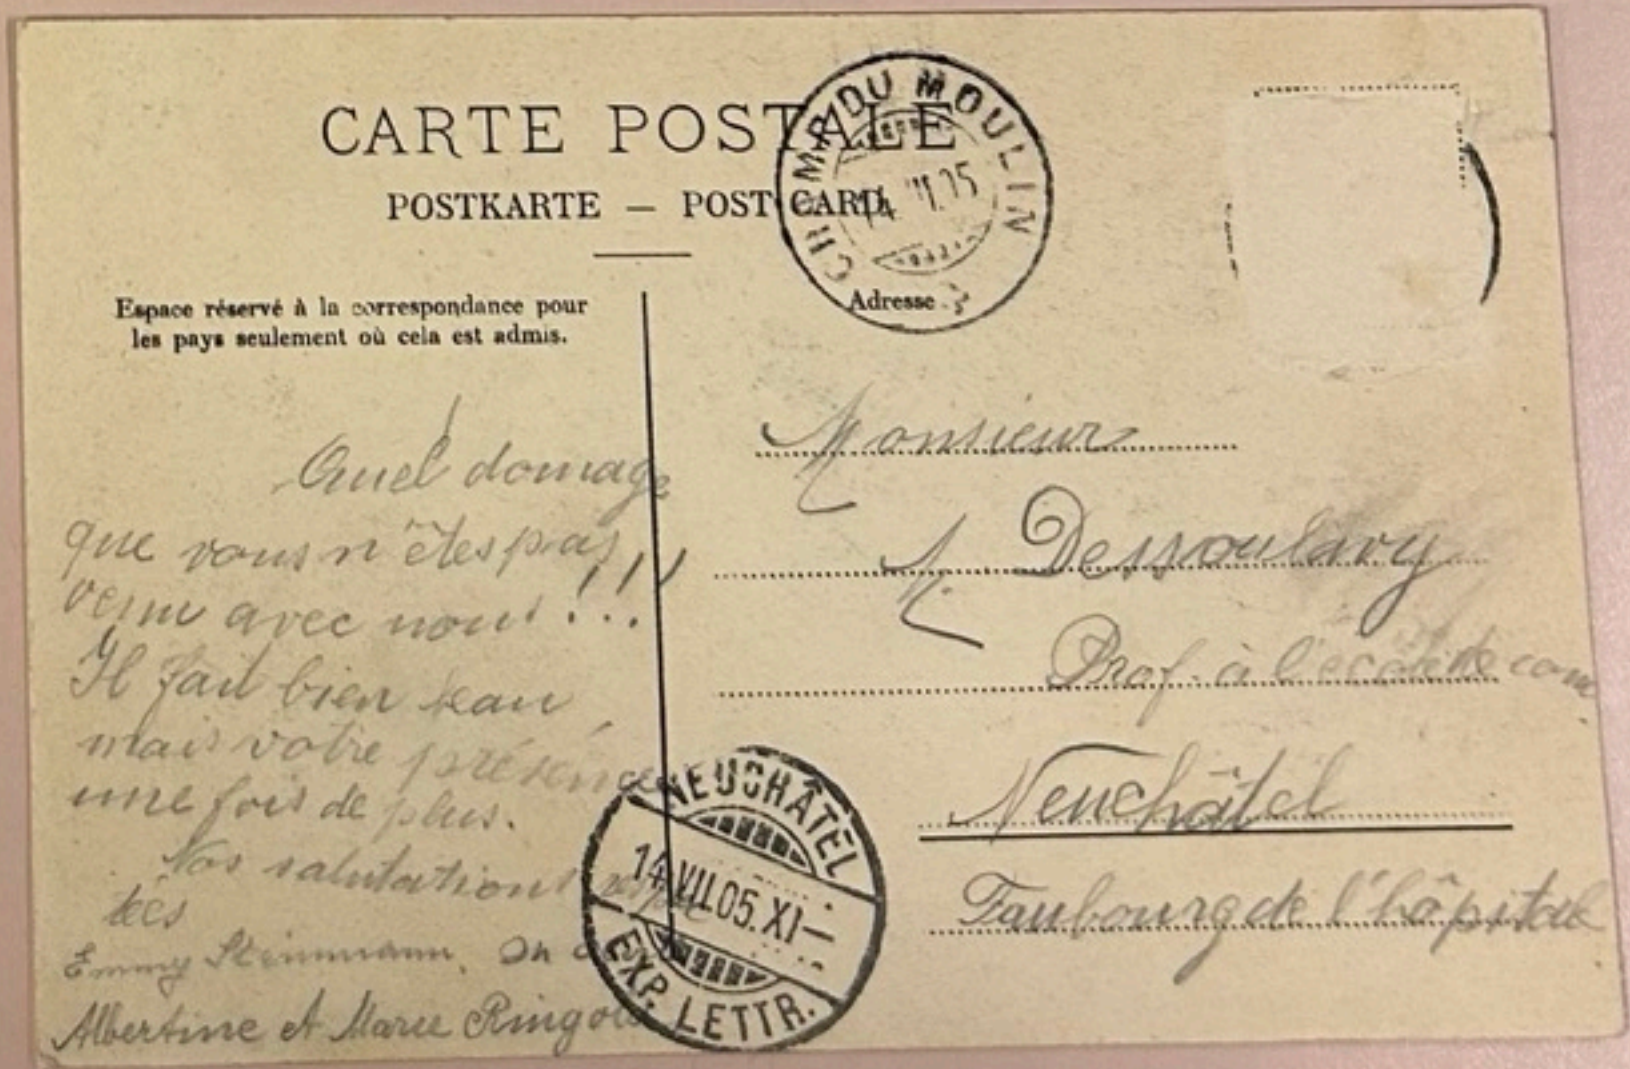 CARTE POSTALE
POSTKARTE — POST CARD
CHAMP DU MOULIN
14 VII.05
Espace réservé à la correspondance pour
les pays seulement où cela est admis.
Adresse
Quel domage
que vous n'êtes pas
venu avec nous!!!
Il fait bien beau
mais votre présence
une fois de plus.
Nos salutations
tées
Emmy Steinmann.
Albertine et Marie
Monsieur
M. Dessoulavy
Prof. à l'école de com
Neuchâtel
Faubourg de l'hôpital
NEUCHÂTEL
14.VII.05.XI—
EXP. LETTR.